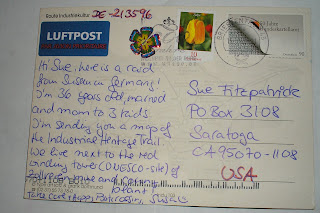 Route Industriekultur
DE-213596
LUFTPOST
Hi Sue, here is a raid
from Susanna Germany!
I'm 36 years old, married
and mom to 3 kids
I'm sending you a map of
the Industrial Heritage Trail
We live next to the red
winding tower (UNESCO-site) of
Zollverein
Take care, Happy Postcrossing,
Sue Fitzpatrick
PO Box 3108
Saratoga
CA 95070-1108
USA